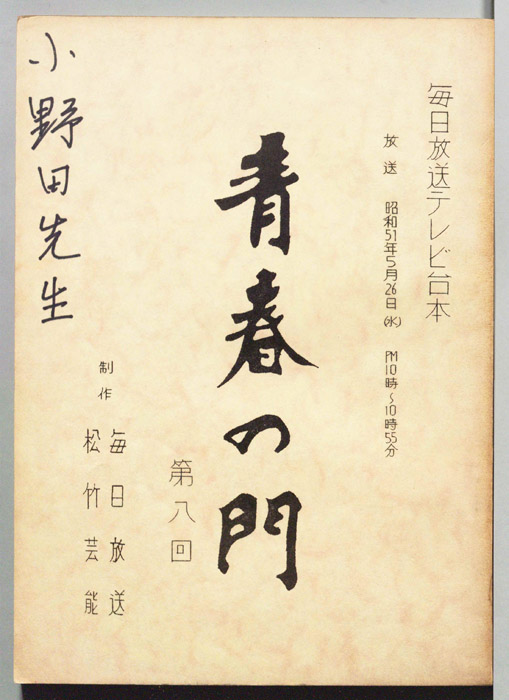 毎日放送テレビ台本
放送 昭和51年5月26日(水) PM10時〜10時55分
青春の門
第八回
制作
毎日放送
松竹芸能
小野田先生